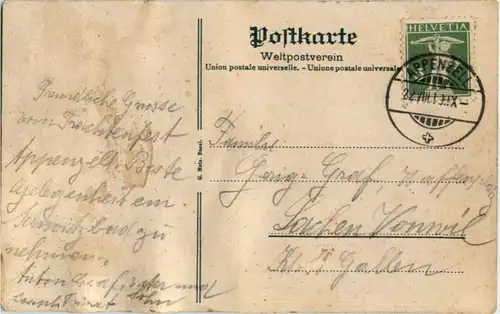 Postkarte
Weltpostverein
Union postale universelle. – Unione postale universale
HELVETIA
APPENZELL
22.VII.1
G. Metz, Basel.
Freundliche Grüsse
vom Trachtenfest
Appenzell. Beste
Gelegenheit ein
zu
nehmen.
Anton Graf,
Sohn
Familie
Georg Graf,
Lachen Vonwil
Kt. St. Gallen